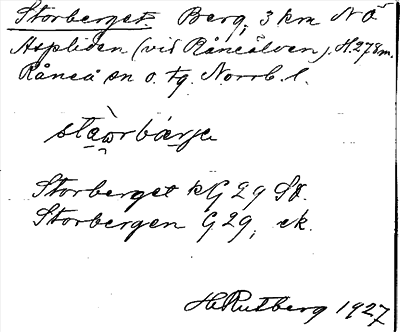 Storberget. Berg, 3 km N Ö
Aspliden (vid Råneälven). H. 278 m.
Råneå sn o. tg. Norrb. l.
Storberget kG 29 SO.
Storbergen G 29, ek.
H Rutberg 1927